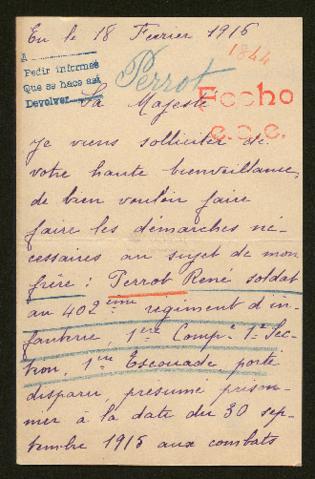 En le 18 Fevrier 1916
1844
A
Pedir informes
Que se hace así
Devolver
Perrot
Fecho
e.o.e.
Sa Majesté
Je viens solliciter de
votre haute bienveillance,
de bien vouloir faire
faire les démarches né-
cessaires au sujet de mon
frère : Perrot René soldat
au 402ème régiment d'in-
fanterie, 1ère Comp. 1e Sec-
tion, 1ère Escouade porté
disparu, présumé prison-
nier à la date du 30 sep-
tembre 1915 aux combats